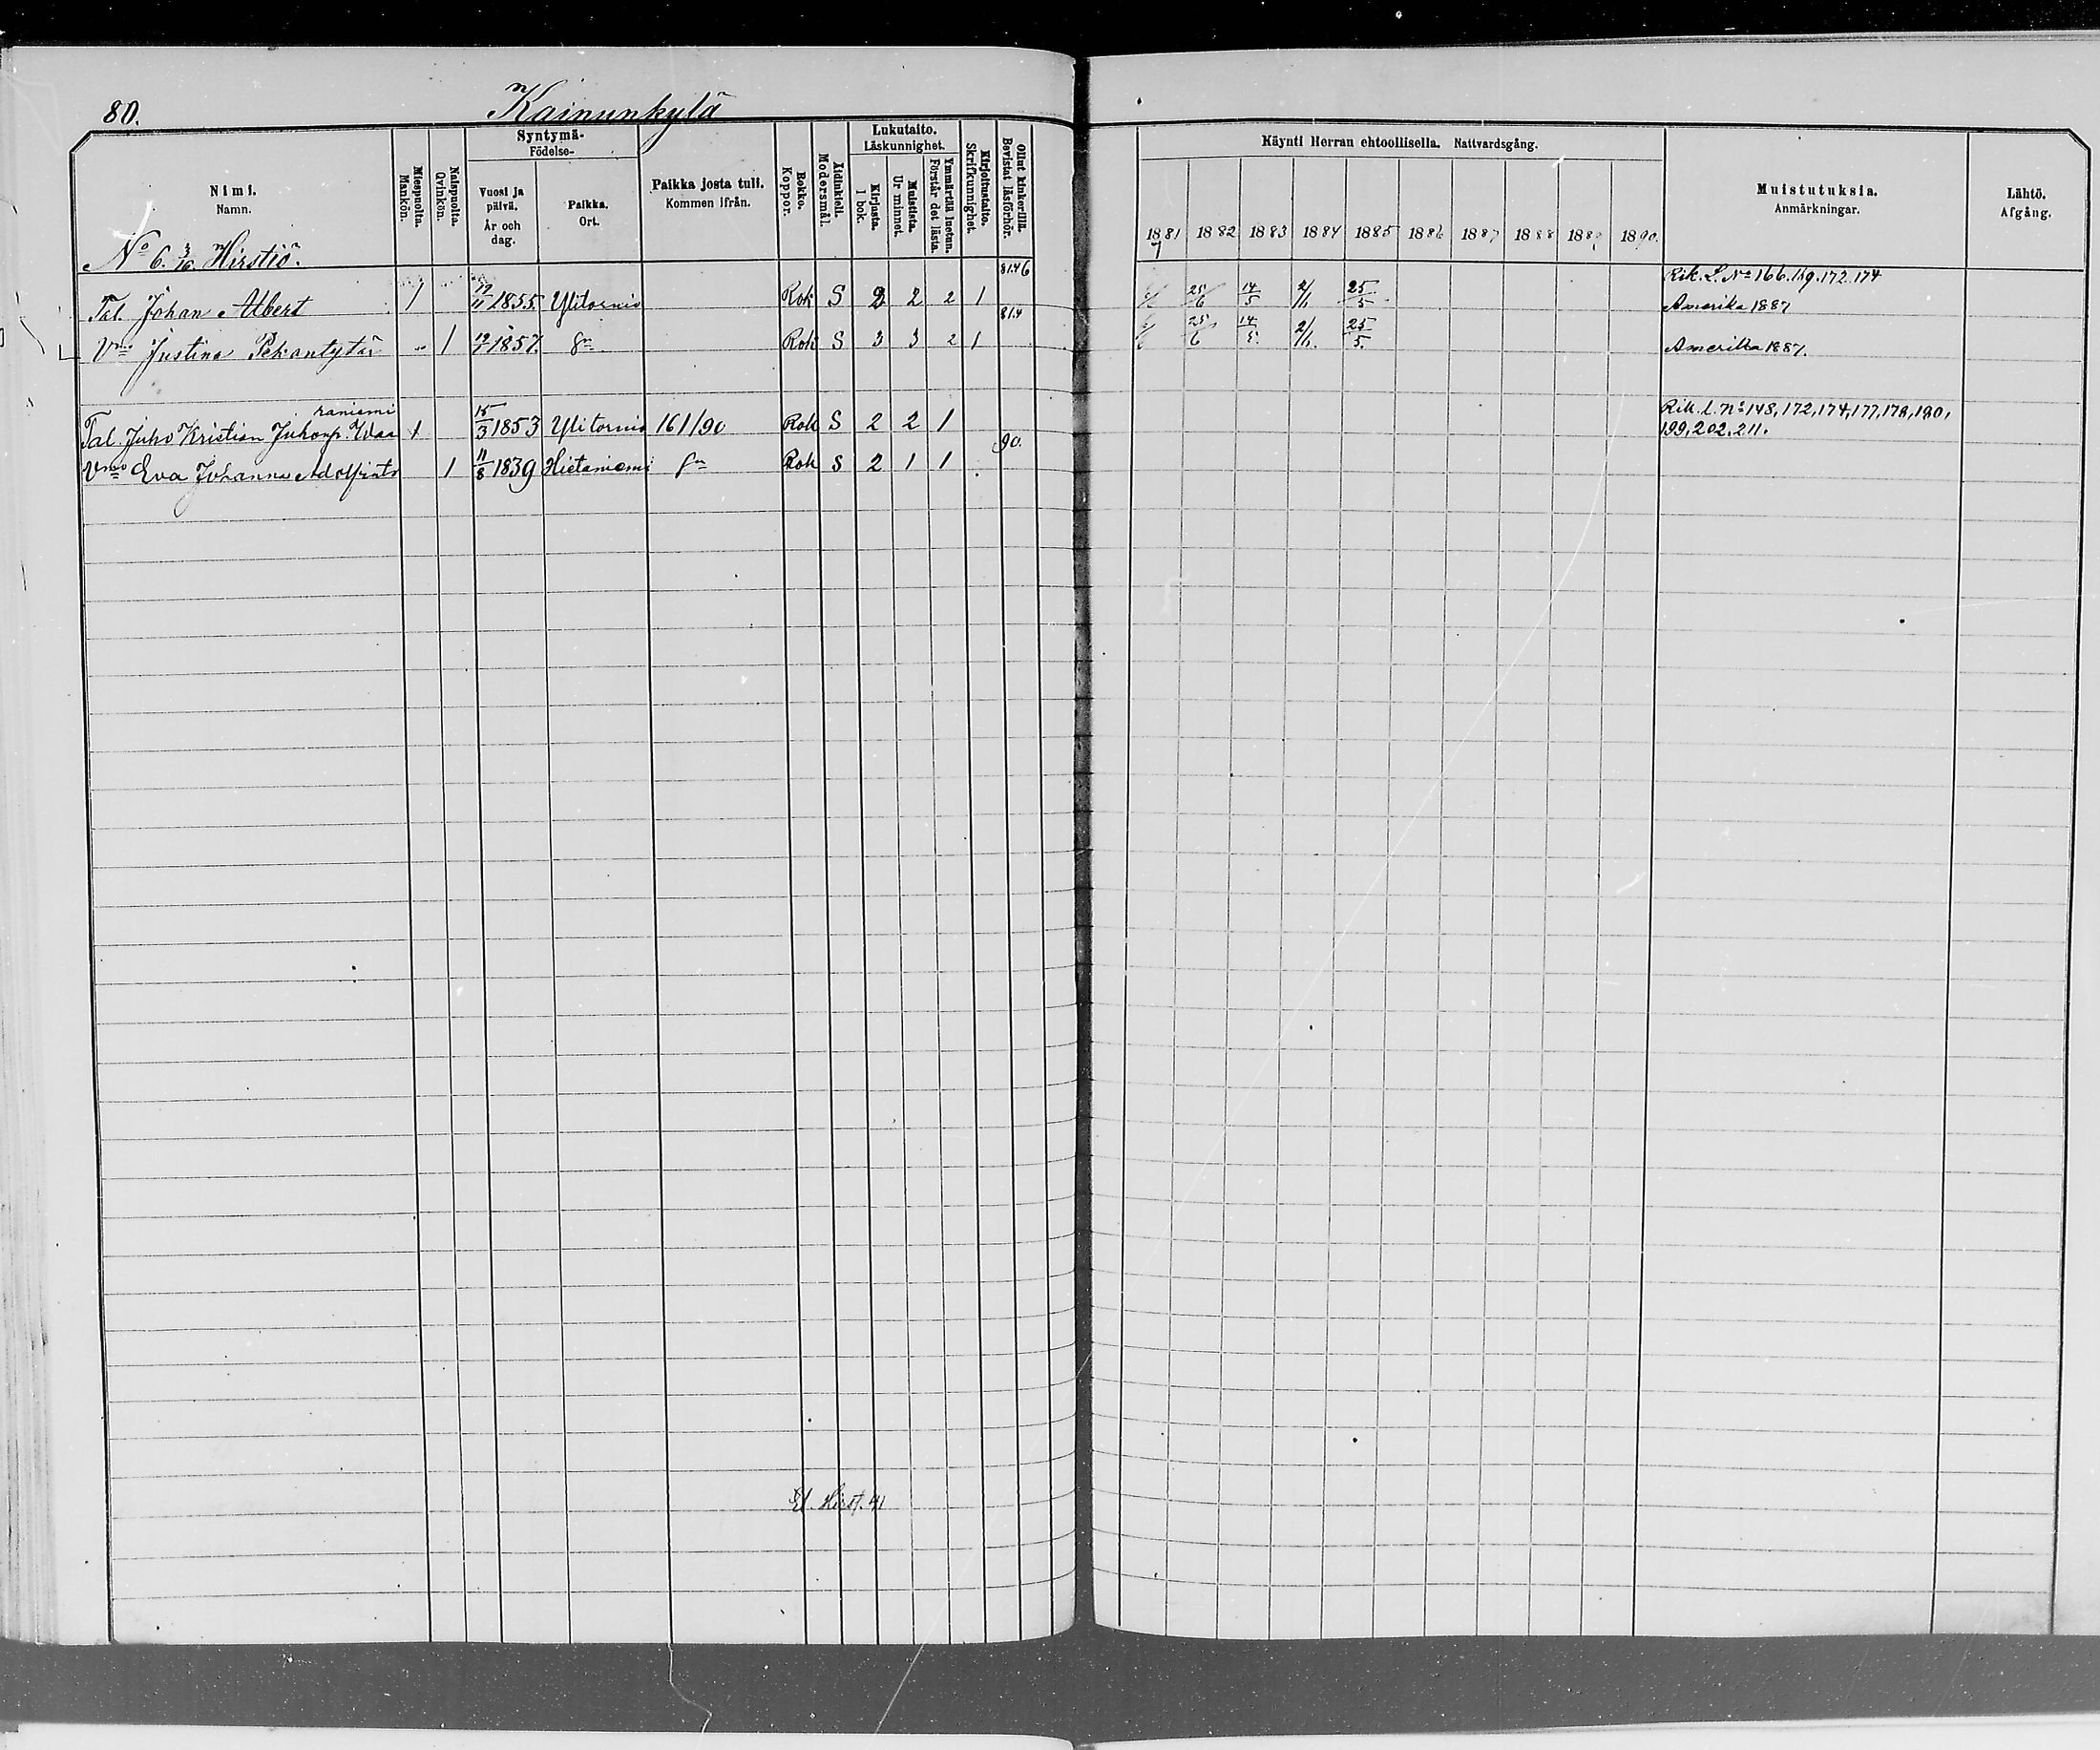 80.
Kainunkylä
Nimi.
Namn.
Miespuolta.
Mankön.
Naispuolta.
Qvinkön.
Syntymä-
Födelse-
Vuosi ja päivä.
År och dag.
Paikka.
Ort.
Paikka josta tuli.
Kommen ifrån.
Rokko.
Koppor.
Äidinkieli.
Modersmål.
Lukutaito.
Läskunnighet.
Kirjasta.
I bok.
Muistista.
Ur minnet.
Ymmärtää luetun.
Förstår det lästa.
Kirjoitustaito.
Skrifkunnighet.
Ollut kinkerillä.
Bevistat läsförhör.
Käynti Herran ehtoollisella. Nattvardsgång.
1881 1882 1883 1884 1885 1886 1887 1888 1889 1890.
Muistutuksia.
Anmärkningar.
Lähtö.
Afgång.
No 6. 3/16 Hirstiö.
81.46
Rik. L. No 166. 169. 172. 174
Tal. Johan Albert 1 1855 Ylitornio Rok S 2 2 2 1 25/6 14/5 2/11 25/5 Amerika 1887
81.4
Vmo Justina Pekantytär 1 1857. Rok S 3 3 2 1 25/6 14/5 2/11 25/5. Amerika 1887.
raniemi
Rik. L. No 148, 172, 174, 177, 178, 190,
Tal. Juho Kristian Juhonp. Waa 1 15/3 1853 Ylitornio 161/90 Rok S 2 2 1 199, 202, 211.
90.
Vmo Eva Johanna Adolfint. 1 11/8 1839 Hietaniemi Rok S 2 1 1
Hirst. 41